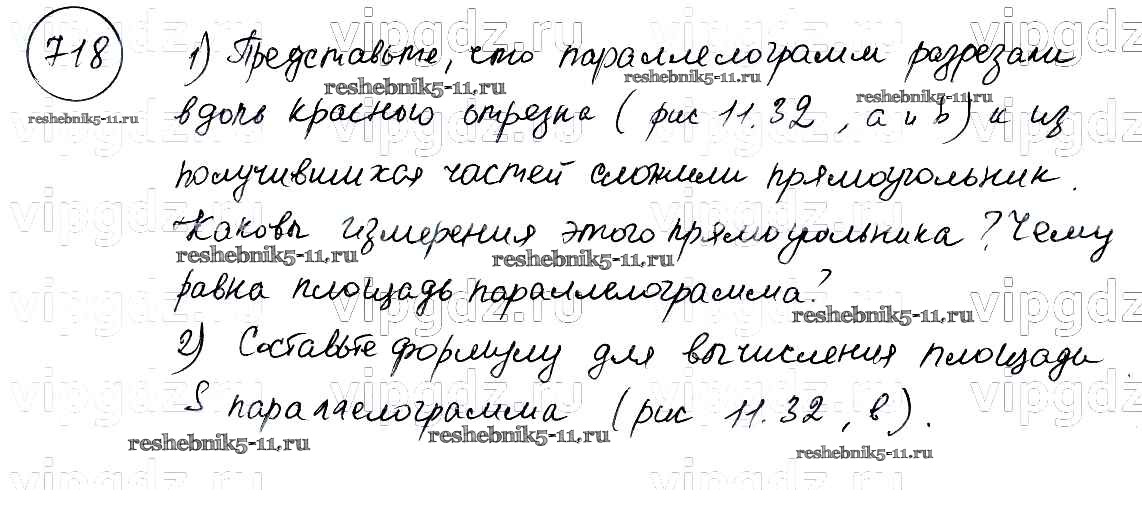 718
1) Представьте, что параллелограмм разрезали
вдоль красного отрезка (рис 11.32, а и в) и из
получившихся частей сложили прямоугольник.
Каковы измерения этого прямоугольника? Чему
равна площадь параллелограмма?
2) Составьте формулу для вычисления площади
S параллелограмма (рис 11.32, в).
vipgdz.ru
reshebnik5-11.ru